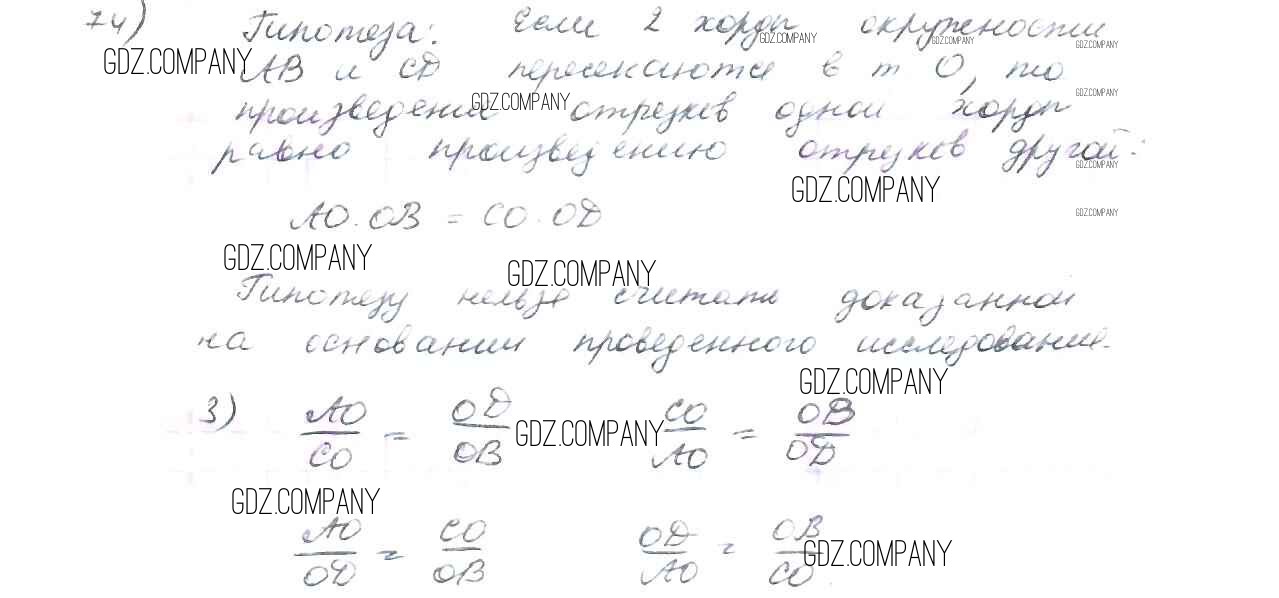 74) Гипотеза: Если 2 хорды окружности
GDZ.COMPANY GDZ.COMPANY GDZ.COMPANY
GDZ.COMPANY АВ и CD пересекаются в т O, то
GDZ.COMPANY GDZ.COMPANY
произведение отрезков одной хорды
равно произведению отрезков другой:
GDZ.COMPANY
GDZ.COMPANY
AO · OB = CO · OD GDZ.COMPANY
GDZ.COMPANY GDZ.COMPANY
Гипотезу нельзя считать доказанной
на основании проведенного исследования.
GDZ.COMPANY
3) AO/CO = OD/OB GDZ.COMPANY CO/AO = OB/OD
GDZ.COMPANY
AO/OD = CO/OB OD/AO = OB/CO GDZ.COMPANY